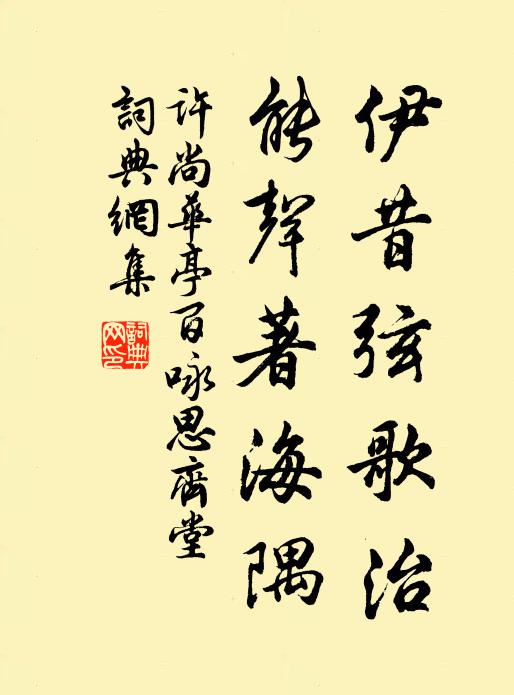 伊昔弦歌治
能聲著海隅
許尚華亭百咏思齊堂
詞典網集
詞典網印